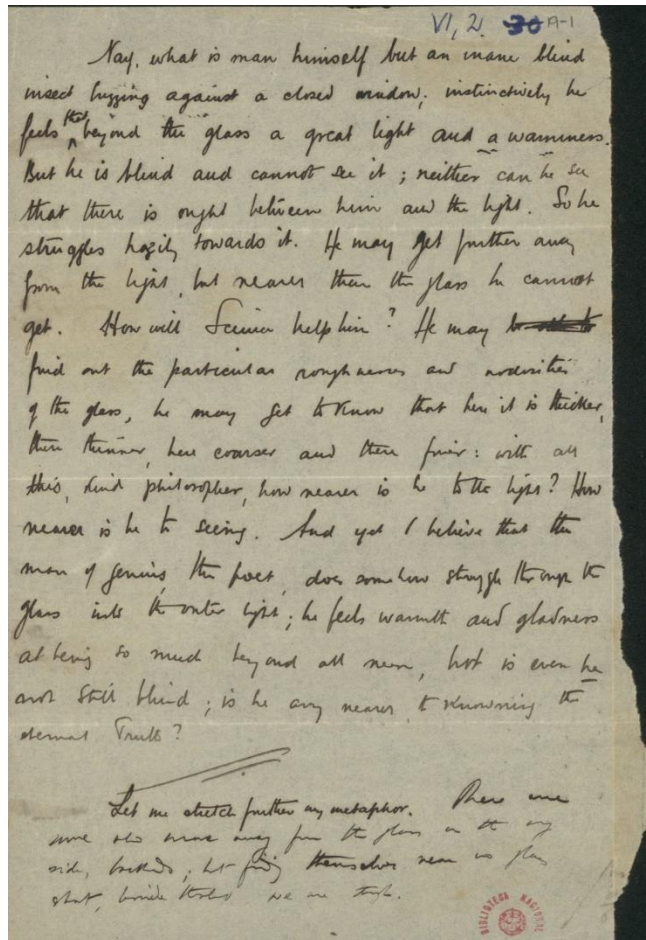 VI, 2. 30 A-1
Nay, what is man himself but an inane blind
insect buzzing against a closed window; instinctively he
feels that beyond the glass a great light and a warmness.
But he is blind and cannot see it; neither can he see
that there is ought between him and the light. So he
struggles hazily towards it. He may get further away
from the light, but nearer than the glass he cannot
get. How will Science help him? He may
find out the particular roughnesses and nodosities
of the glass, he may get to know that here it is thicker,
there thinner, here coarser and there finer: with all
this, kind philosopher, how nearer is he to the light? How
nearer is he to seeing. And yet I believe that the
man of genius, the poet, does somehow struggle through the
glass into the outer light; he feels warmth and gladness
at being so much beyond all men, but is even he
not still blind; is he any nearer to knowning the
eternal Truth?
Let me stretch further my metaphor. There are
some who move away from the glass on the
side, backwards; but finding themselves near no glass
we are
BIBLIOTECA NACIONAL